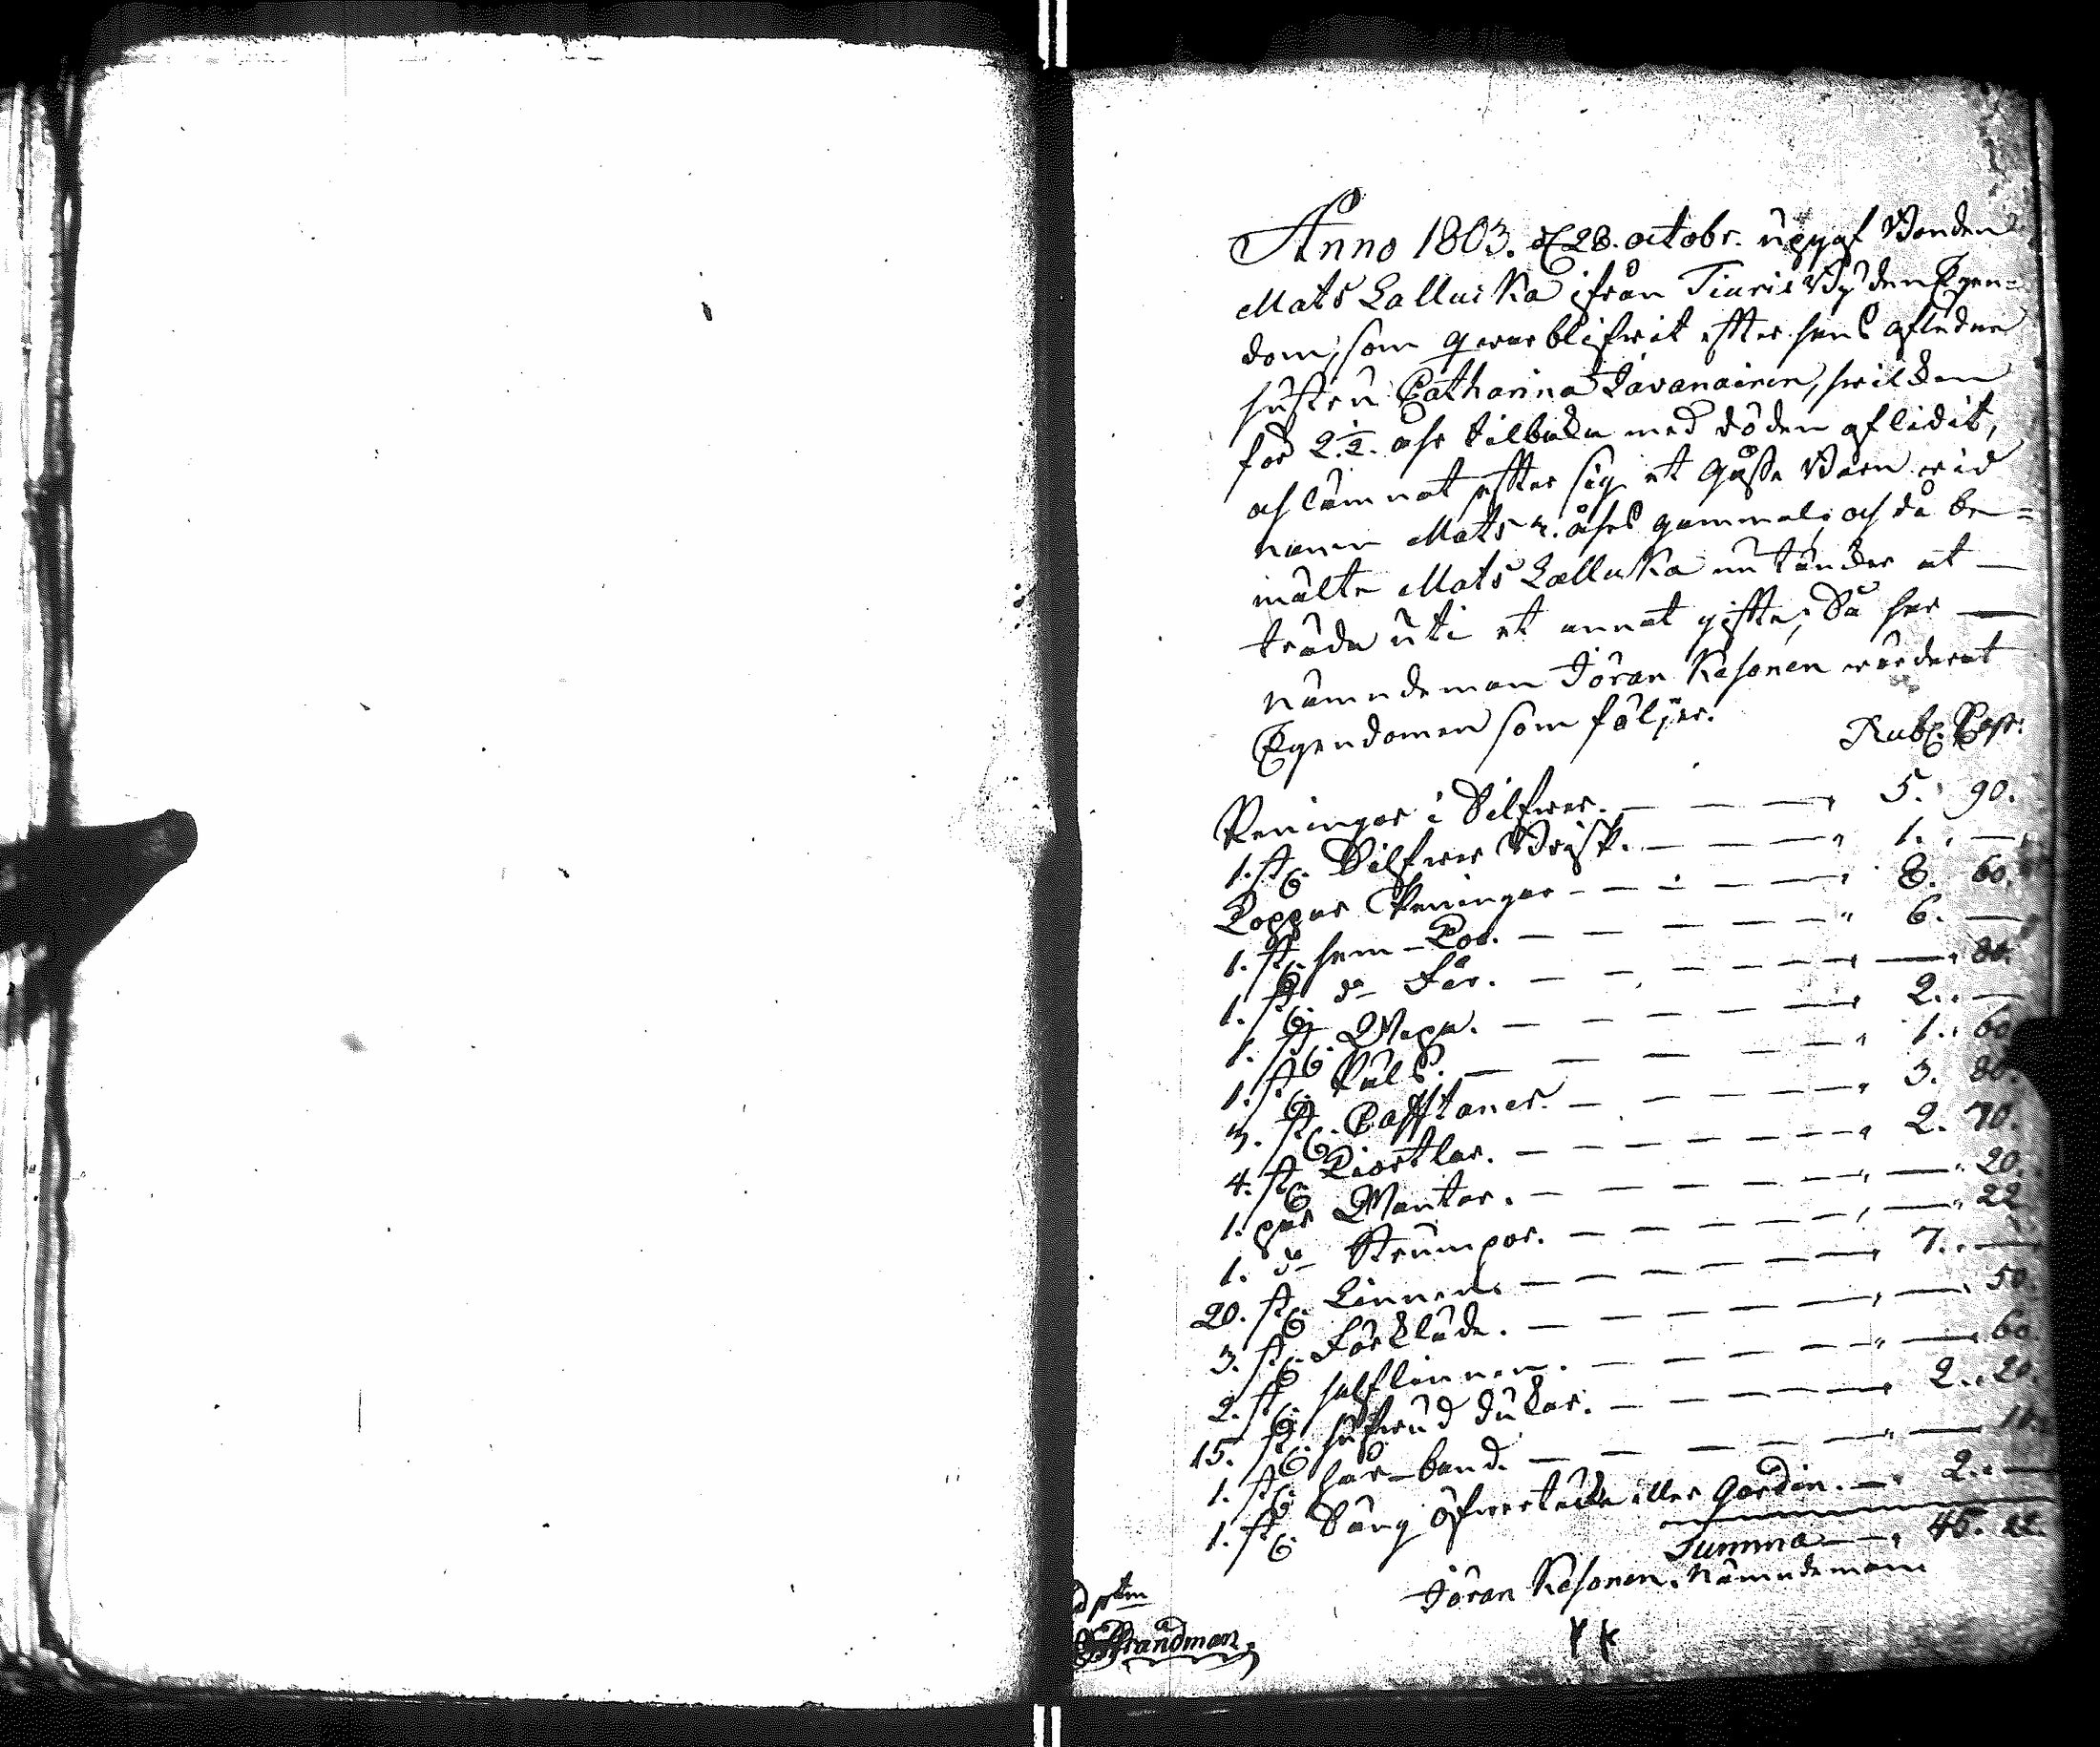 Anno 1803. d. 28. octobr. upgaf Bonden
Mats Lalluika ifrån Tiuris By den Egen=
dom, som qwarblifwit efter hans aflidne
hustru Catharina Tavanainen, hwilken
för 2.½. åhr tilbaka med döden aflidit,
och lämnat efter sig et Gåsse Barn wid
namn Mats 3. åhrs gammal; och då be=
mälte Mats Lalluka nu tänker at —
träda uti et annat gifte; Så har —
nämndeman Jöran Kesonen wärderat
Egendomen som följer.
Rubl. Cop:
Peningar i Silfwer. — — — „ 5. 90.
1. st. Silfwer Brisk. — — — „ 1. „ —
Koppar Peningar — — — — „ 8. 60.
1. st. hem-Ko. — — — — — „ 6. —
1. st. d:o Får. — — — — — „ — „ 80.
1. st. Wepa. — — — — — „ 2. „ —
1. st. Päls. — — — — „ 1. „ 60
3. st. Cafftaner. — — — — „ 3. 80.
4. st. Kiortlar. — — — — — „ 2. 70.
1. par Wantar. — — — — — „ — „ 20.
1. d:o Strumpor. — — — — „ — „ 22
20. st. Linnen. — — — — — „ 7. „ —
3. st. Förkläde. — — — — — „ — „ 50.
2. st. halflinnen. — — — — „ — 60.
15. st. hufwud dukar. — — — — „ 2. „ 20.
1. st. hår-band. — — — — — „ — 10.
1. st. Säng öfwertäcke eller Gardin. — „ 2. „ —
Summa — „ 45. 22.
Jöran Kesonen. Nämndeman
Strandman